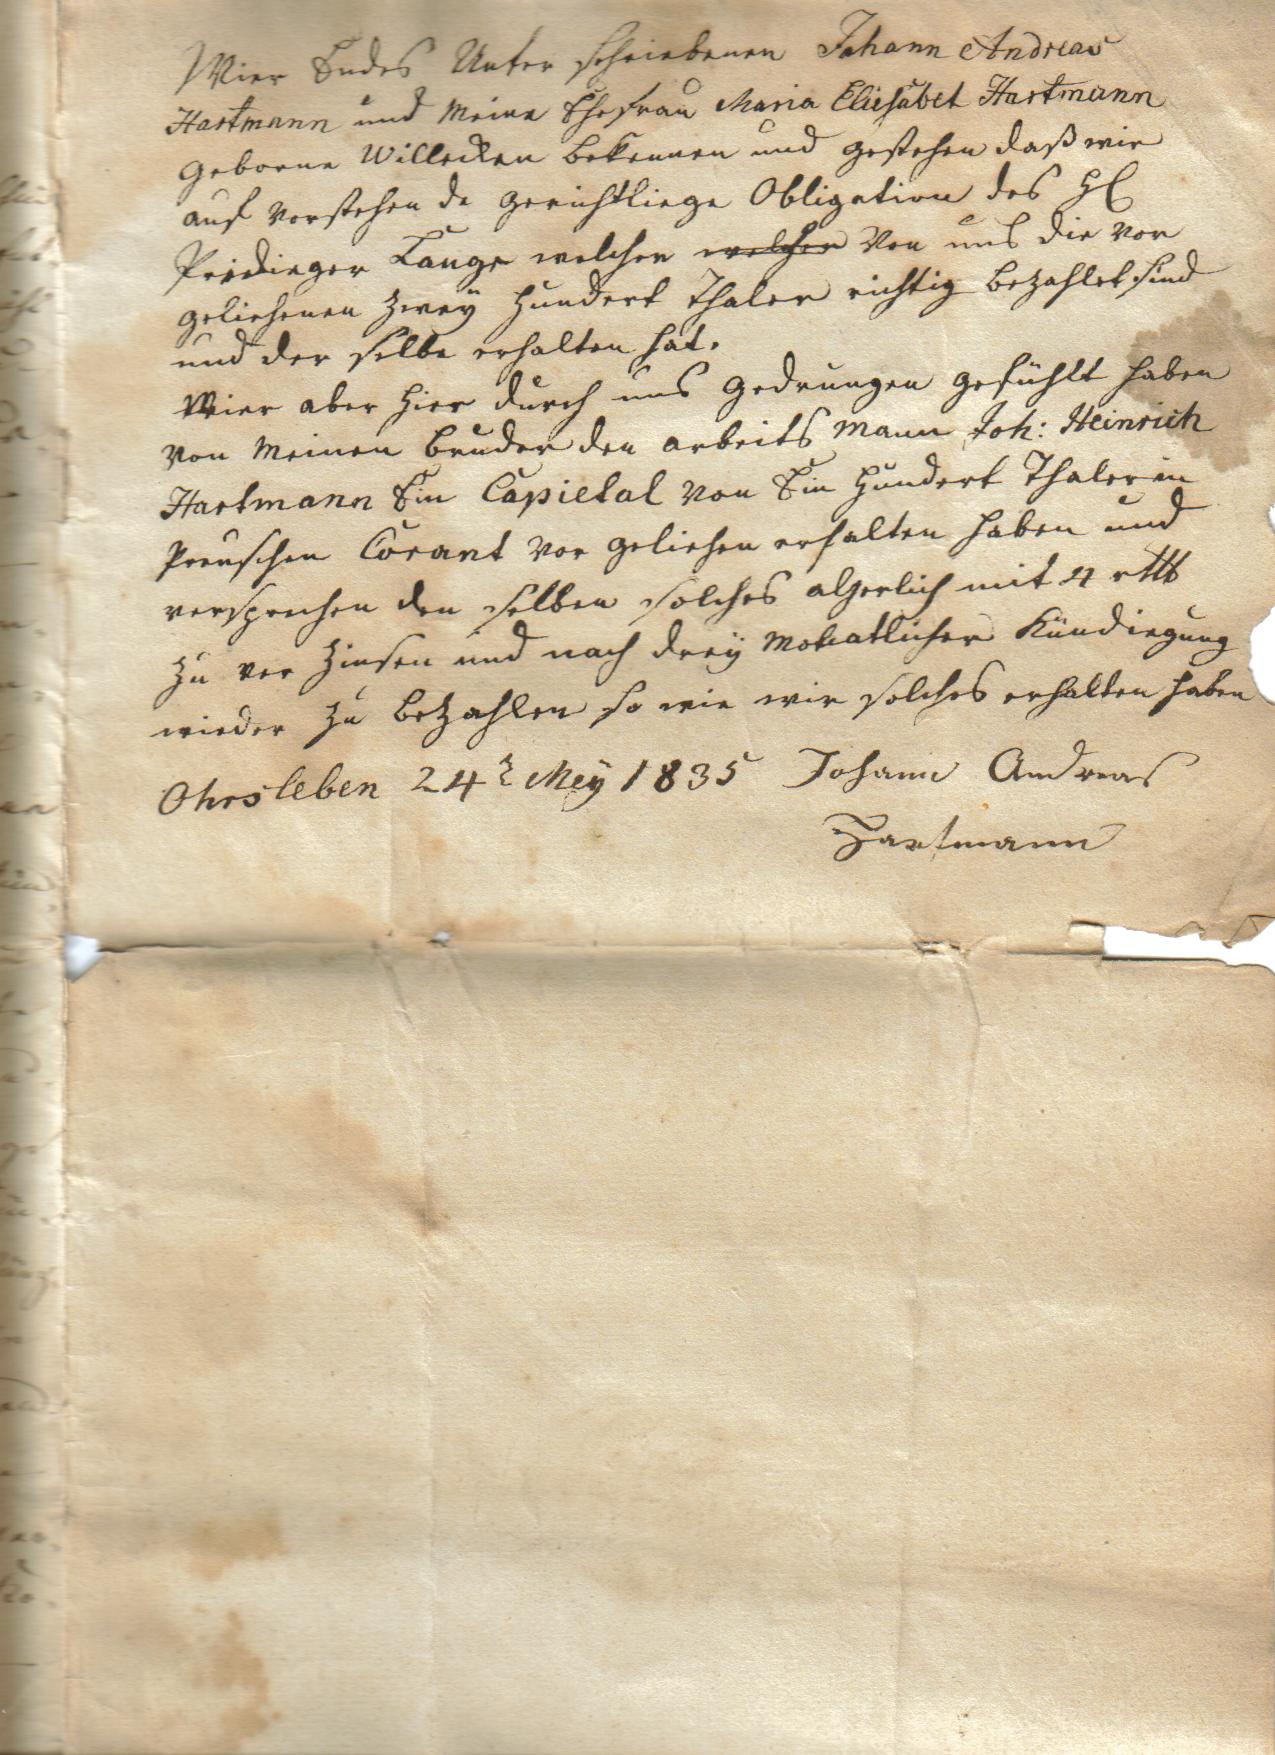 Wier Endes Unter schriebenen Johann Andreas
Hartmann und Meine Ehefrau Maria Eliesabet Hartmann
geborne Willecken bekennen und gestehen daß wir
auf vorstehen de gerichtliege Obligation des H
Prediger Lange welcher welcher von uns die vor
geliehenen zwey Hundert Thaler richtig bezahlet sind
und der selbe erhalten hat.
Wier aber hier durch uns gedrungen gefühlt haben
von Meinen bruder den arbeits Mann Joh: Heinrich
Hartmann Ein Capietal von Ein Hundert Thaler in
Preuschen Corant vor geliehen erhalten haben und
versprechen den selben solches aljerlich mit 4 rtlb
zu ver Zinsen und nach dreÿ Monatlicher Kündiegung
wieder zu bezahlen so wie wir solches erhalten haben
Ohrsleben 24t Meÿ 1835 Johann Andreas
Hartmann